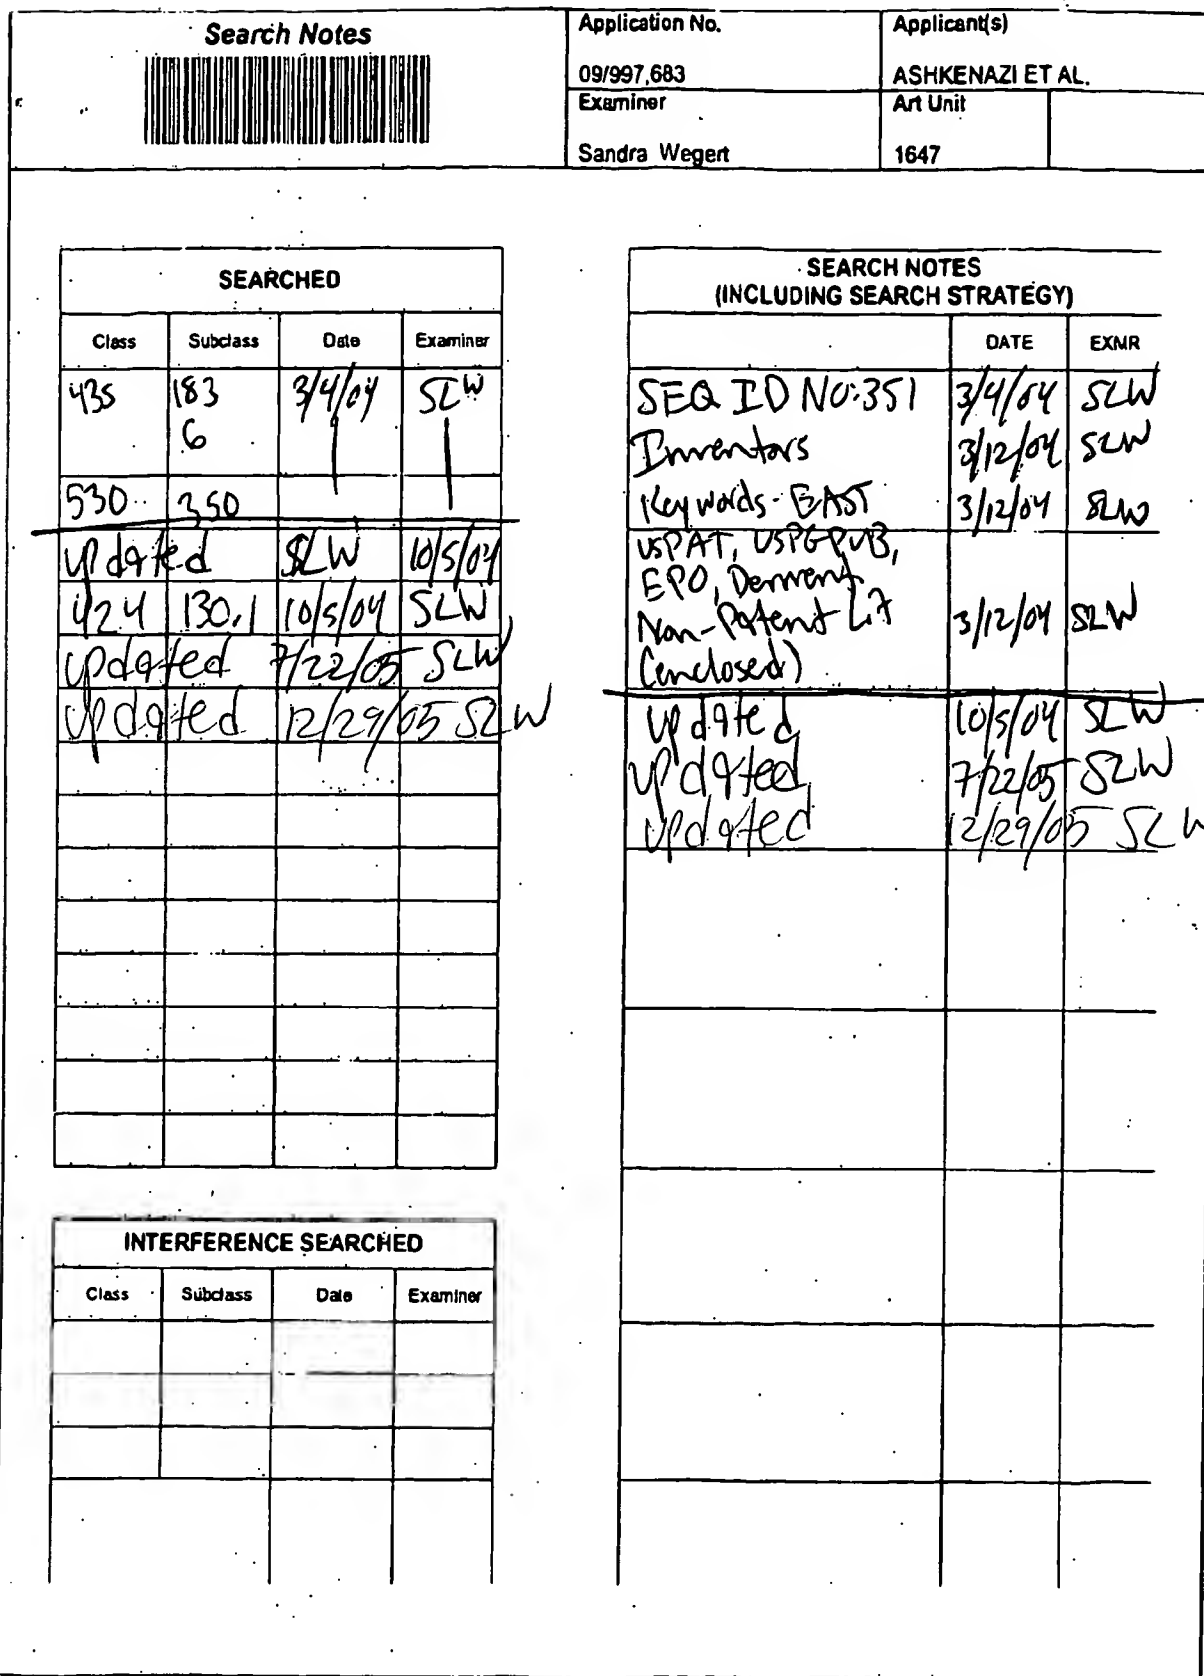 Search Notes
Application No.
09/997,683
Applicant(s)
ASHKENAZI ET AL.
Examiner
Sandra Wegert
Art Unit
1647
SEARCHED
Class Subclass Date Examiner
435 183 3/4/04 SLW
6
530 350
updated SLW 10/5/04
424 130.1 10/5/04 SLW
updated 7/22/05 SLW
updated 12/29/05 SLW
INTERFERENCE SEARCHED
Class Subclass Date Examiner
SEARCH NOTES
(INCLUDING SEARCH STRATEGY)
DATE EXMR
SEQ ID NO:351 3/4/04 SLW
Inventors 3/12/04 SLW
Key words - EAST 3/12/04 SLW
USPAT, USPGPUB,
EPO, Derwent,
Non-Patent Lit 3/12/04 SLW
(enclosed)
updated 10/5/04 SLW
updated 7/22/05 SLW
updated 12/29/05 SLW